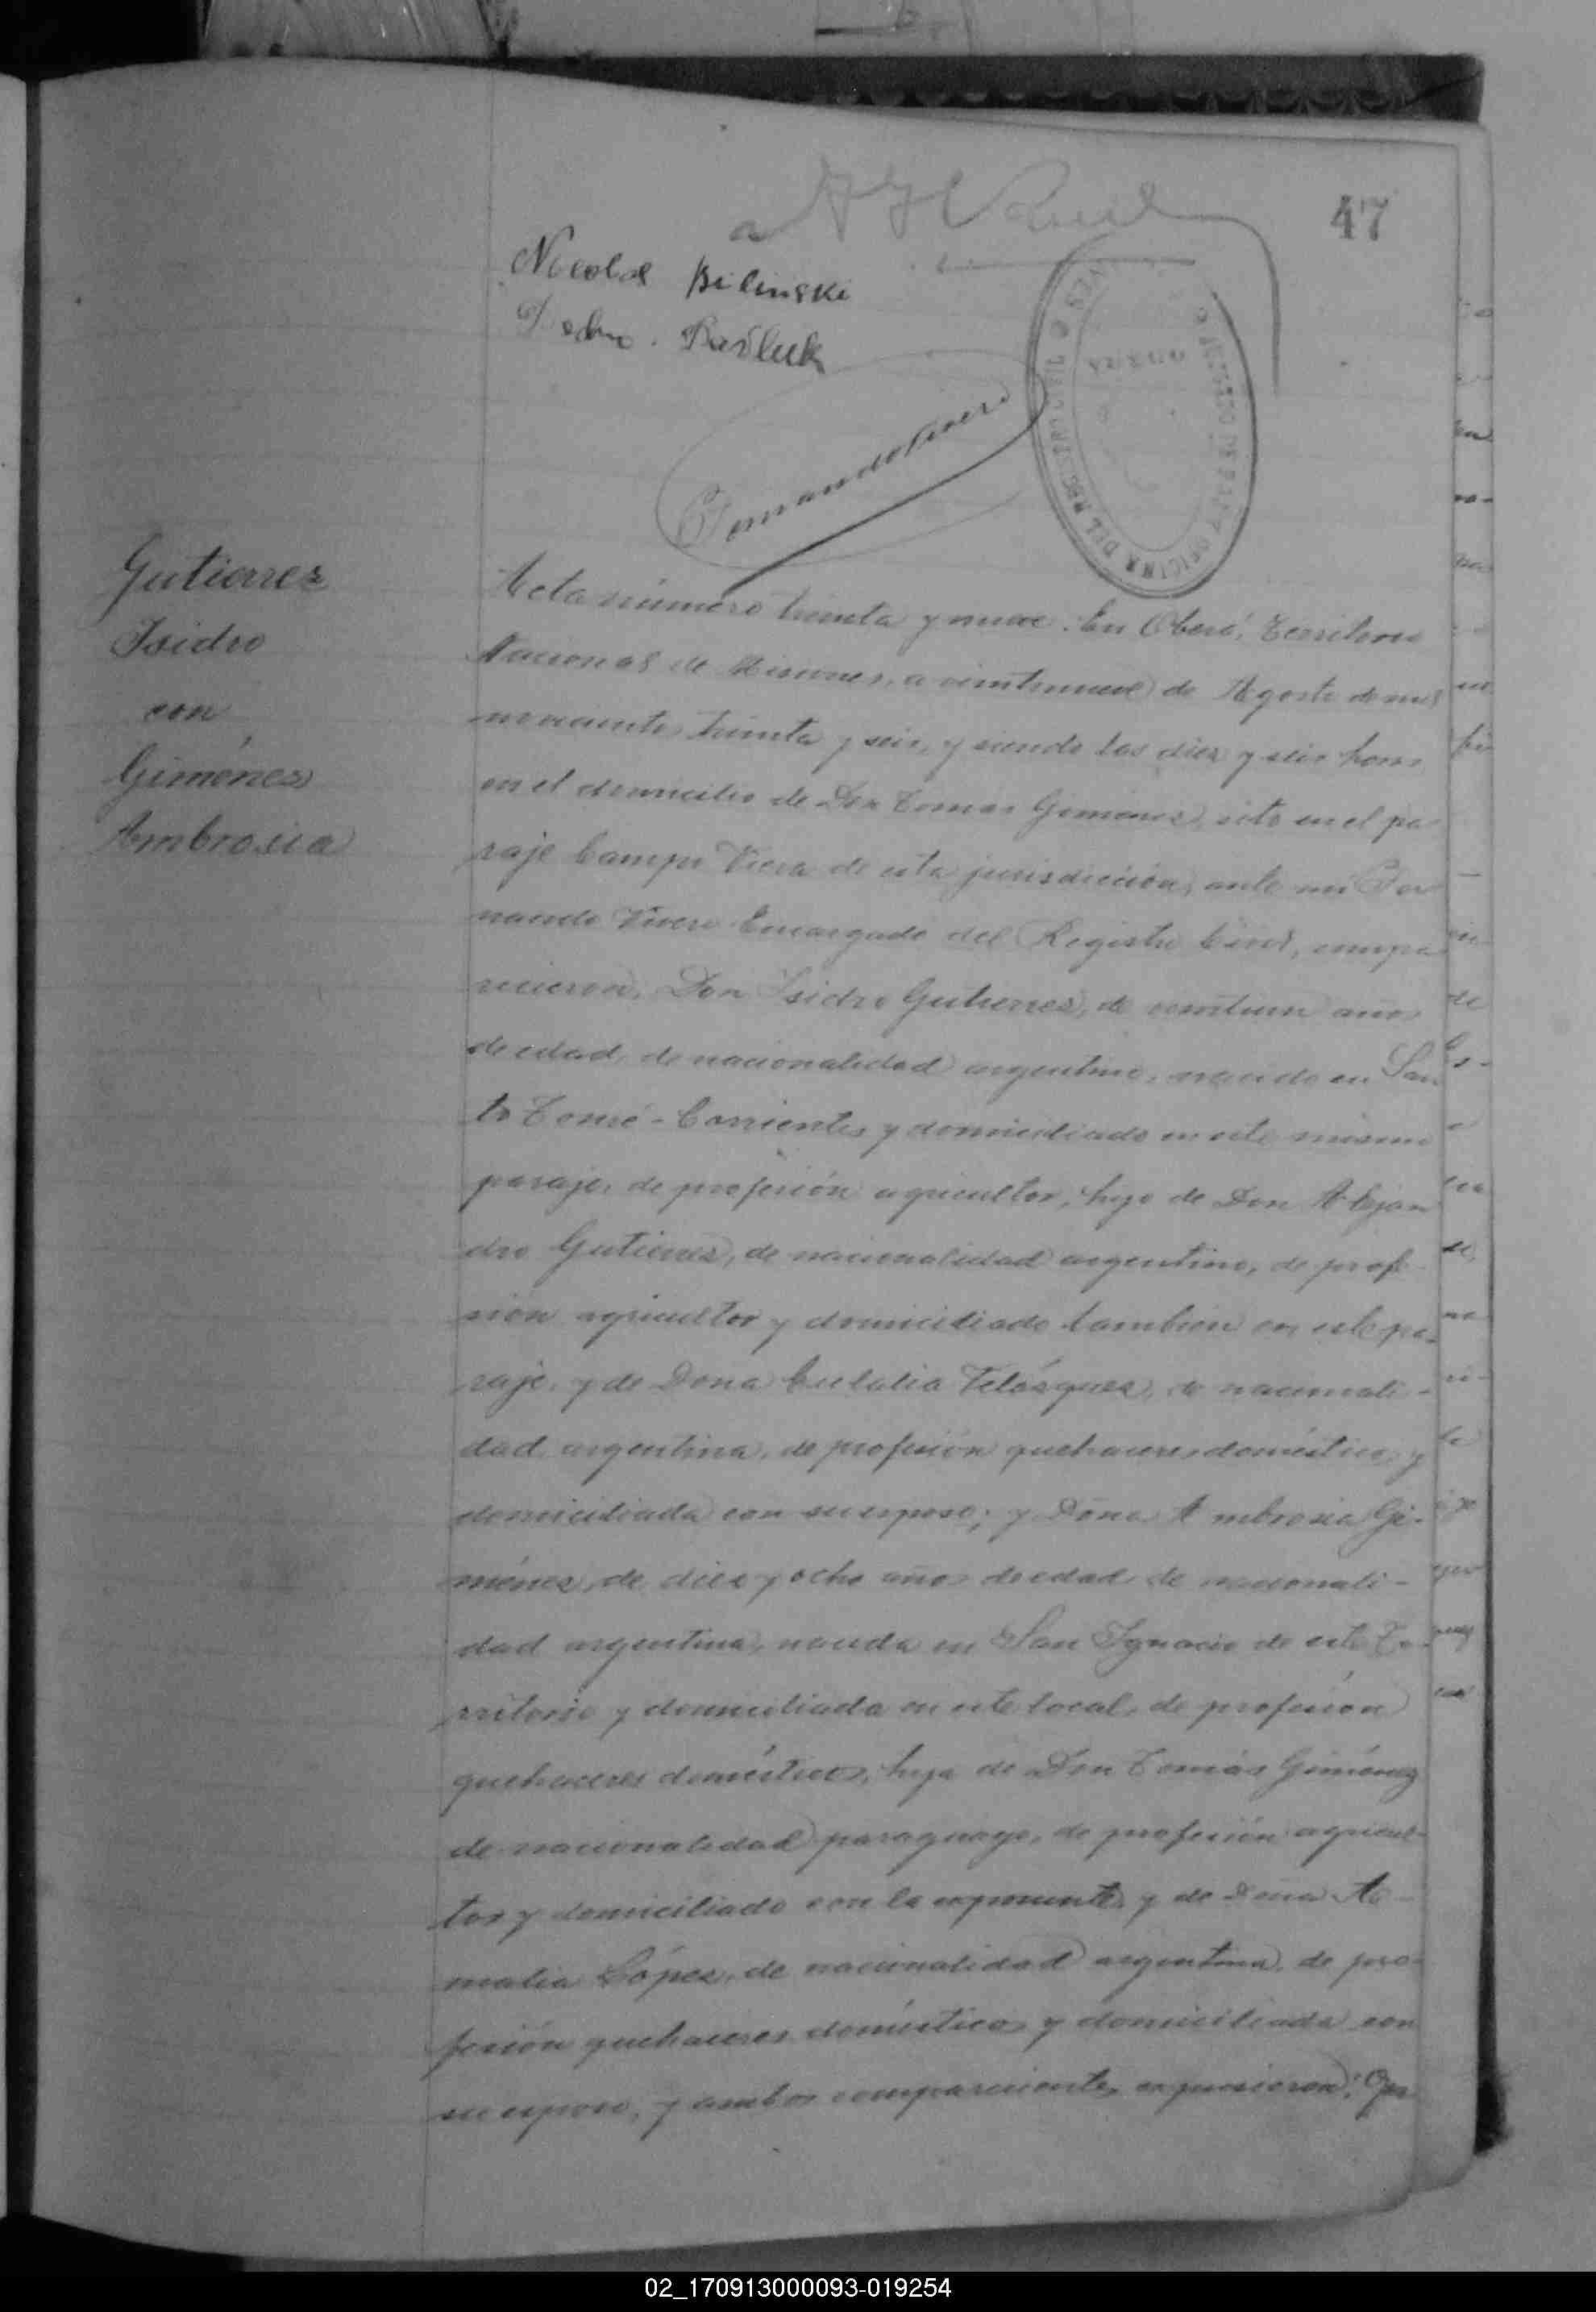 47
Nicolas Bilinski
Pedro. Pawluk
Fernando Vivero
Gutierrez
Isidro
con
Giménez
Ambrosia
Acta número treinta y nueve. En Oberá, Territorio
Nacional de Misiones, a veintinueve de Agosto de mil
novecientos treinta y seis, y siendo las diez y seis horas
en el domicilio de Don Tomas Gimenez, sito en el pa
raje Campo Viera de esta jurisdicción, ante mi Fer
nando Vivero Encargado del Registro Civil, compa
recieron, Don Isidro Gutierrez, de veintiun años
de edad, de nacionalidad argentino, nacido en San
to Tomé - Corrientes y domiciliado en este mismo
paraje, de profesión agricultor, hijo de Don Alejan
dro Gutierrez, de nacionalidad argentino, de profe
sión agricultor y domiciliado tambien en este pa-
raje, y de Dona Eulalia Velásquez, de nacionali-
dad argentina, de profesión quehaceres domésticos y
domiciliada con su esposo; y Doña Ambrosia Gi-
ménez, de diez y ocho años de edad, de nacionali-
dad argentina, nacida en San Ignacio de este Te-
rritorio y domiciliada en este local, de profesión
quehaceres domésticos, hija de Don Tomás Giménez
de nacionalidad paraguayo, de profesión agricul-
tor y domiciliado con la exponente y de Doña A-
malia López, de nacionalidad argentina, de pro-
fesión quehaceres domésticos y domiciliada con
su esposo, y ambos comparecientes expusieron: Que
02_170913000093-019254